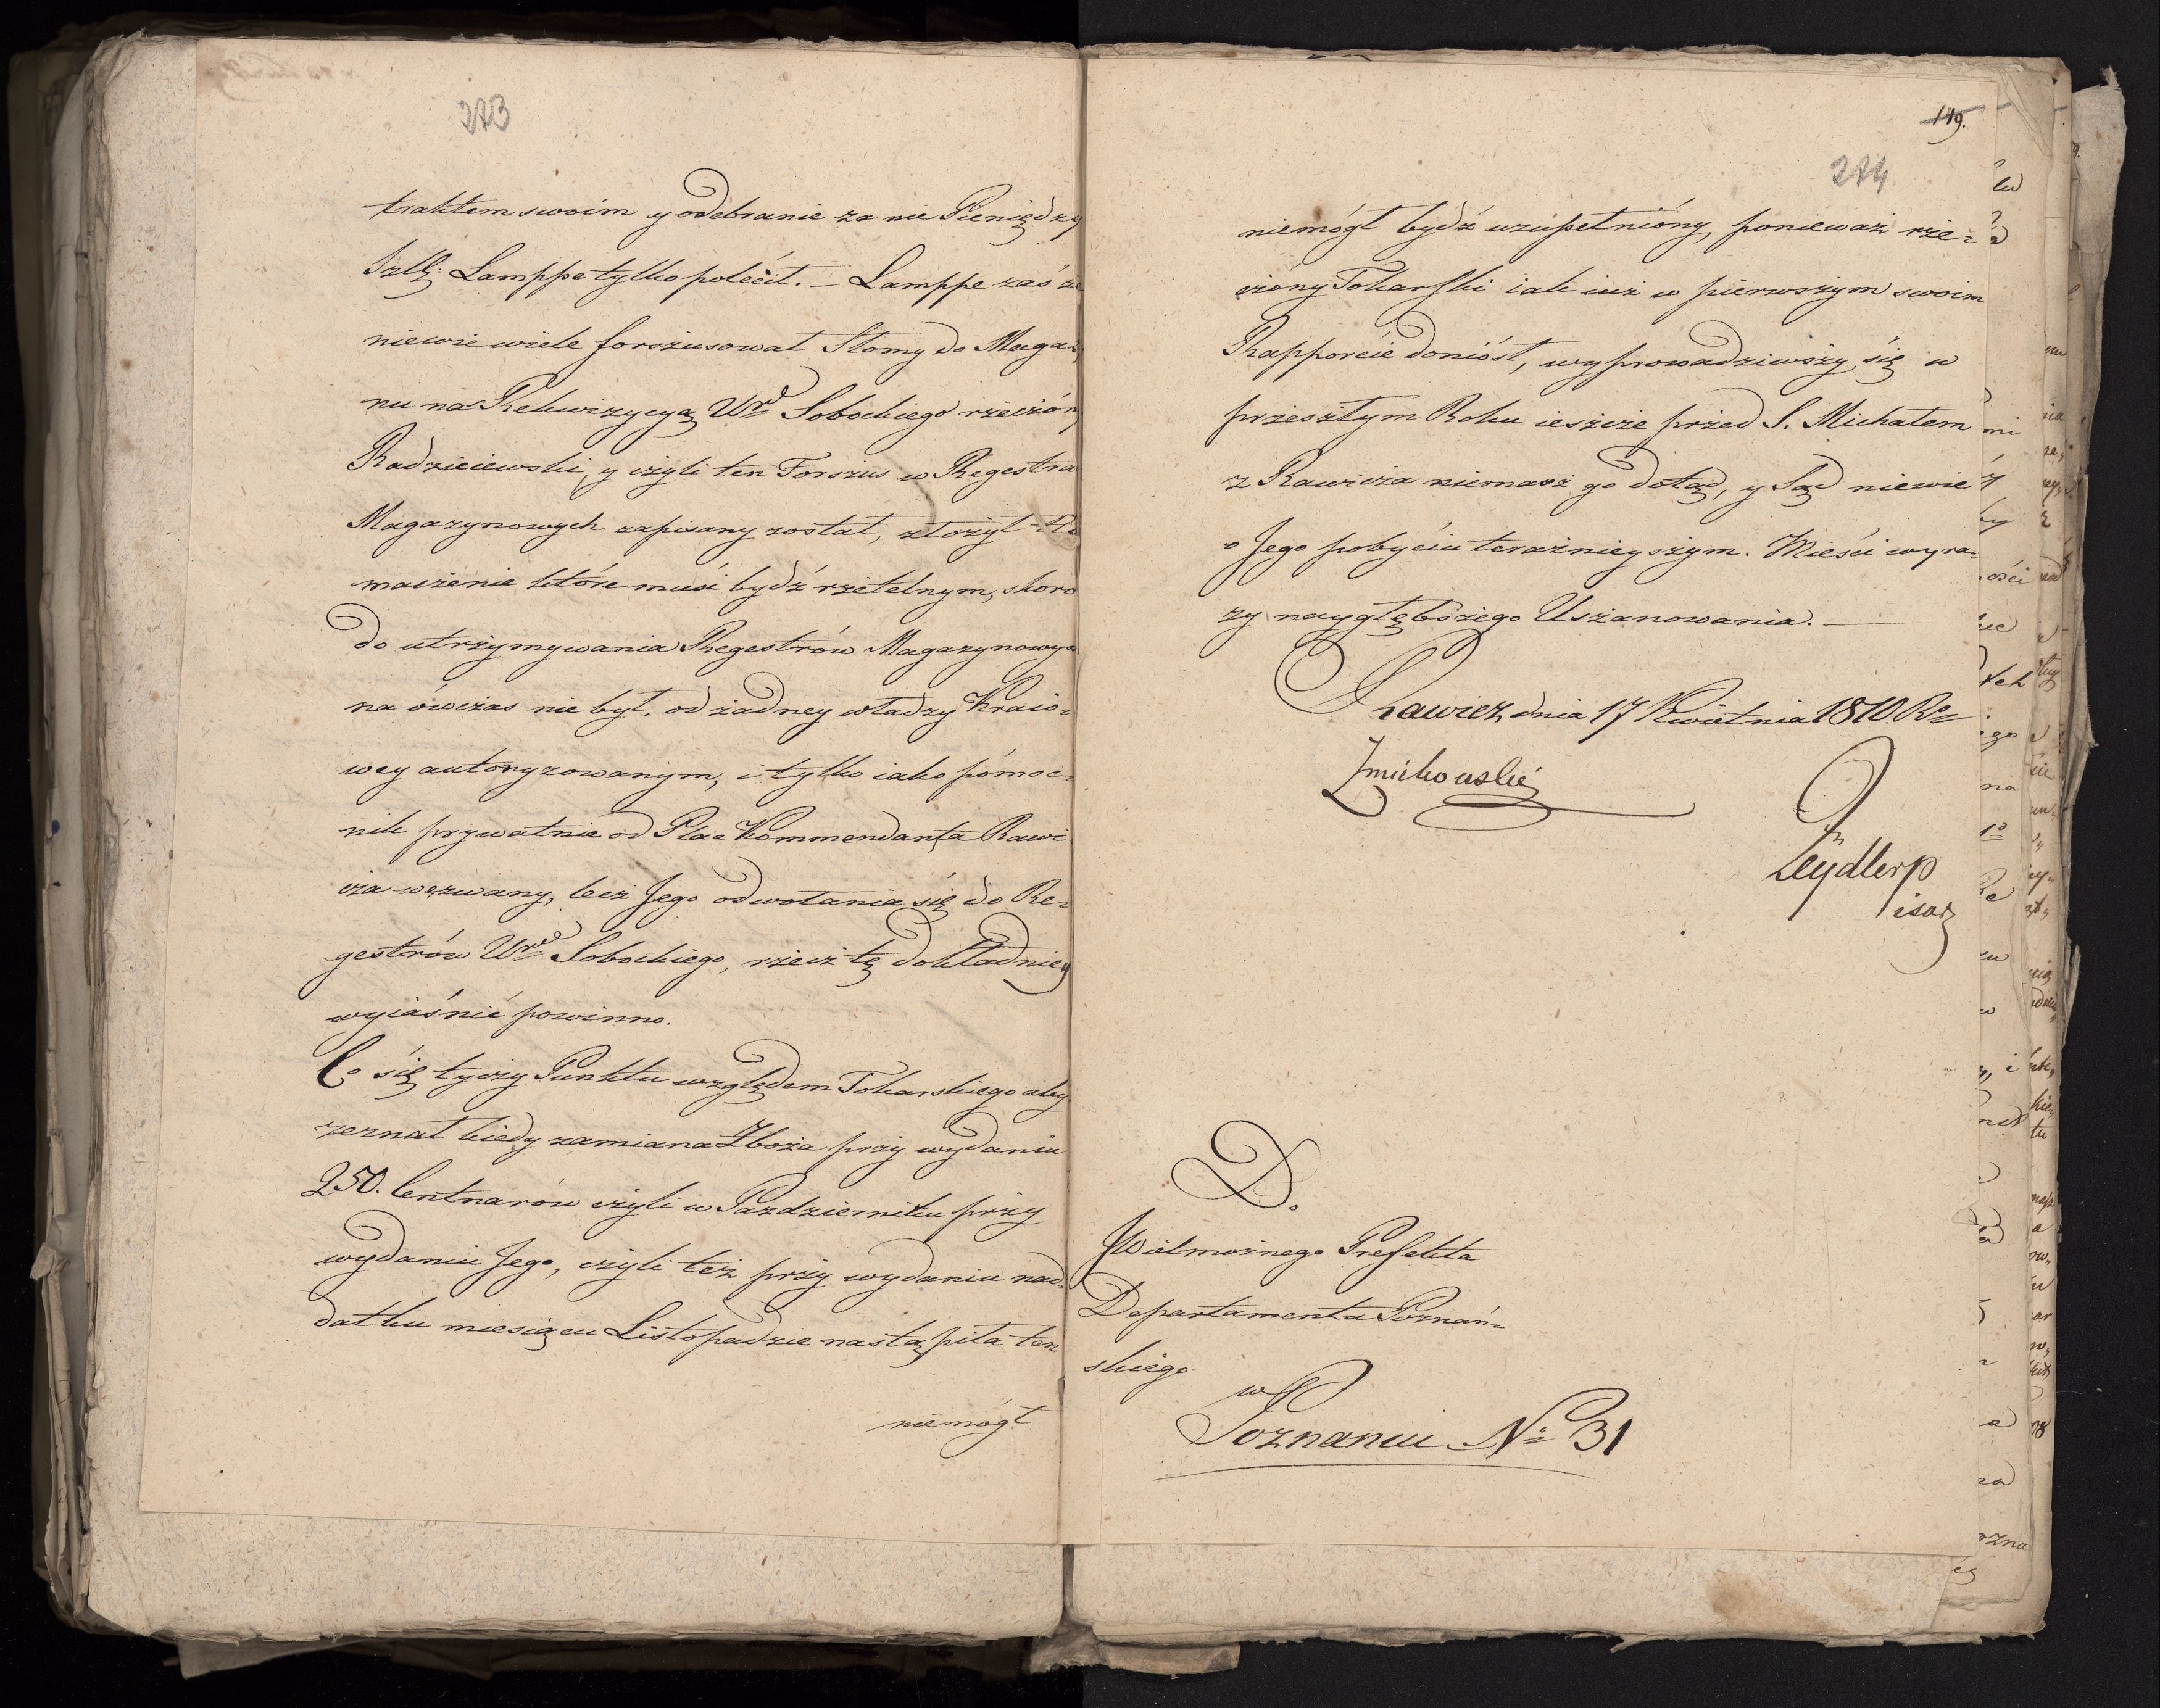 273
traktem swoim y odebranie za nie Pieniędzy
Szlt: Lamppe tylko polécił. — Lamppe zaś że
niewie wiele forszusował Słomy do Magazy
nu na Rekwizycyą Ur: Sobockiego rzeczón
Radzieiewski, y czyli ten Forszus w Regestra
Magazynowych zapisany został, złożył tło
maczenie które musi bydź rzetelnym, skoro
do utrzymywania Regestrów Magazynowych
na ówczas nie był, od żadney władzy Kraio=
wey autoryzowanym, i tylko iako pómoc=
nik prywatnie od Plac Kommendanta Rawi
cza wezwany, lecz Jego odwołania się do Re=
gestrów Ur: Sobockiego, rzecz tę dokładniey
wyiaśnić powinno.
Co się tyczy Punktu względem Tokarskiego aby
zeznał kiedy zamiana Zboża przy wydaniu
250. Centnarów czyli w Pazdzierniku przy
wydaniu Jego, czyli też przy wydaniu nad=
datku miesiącu Listopadzie nastąpiła ten
niemógł
149.
274
niemógł bydź uzupełnióny, ponieważ rze=
czóny Tokarski iak iuż w pierwszym swoim
Rapporćie doniósł, wyprowadziwszy się w
przeszłym Roku ieszcze przed S. Michałem
z Rawicza niemasz go dotąd, y Sąd niewie
o Jego pobyciu teraźnieyszym. Mieści wyra=
zy naygłębszego Uszanowania. —
Rawicz dnia 17 Kwietnia 1810 Ro
Żmikowski
Zeydler p
isarz
D.
JWielmożnego Prefekta
Departamentu Poznań=
skiego.
w
Poznaniu No 31